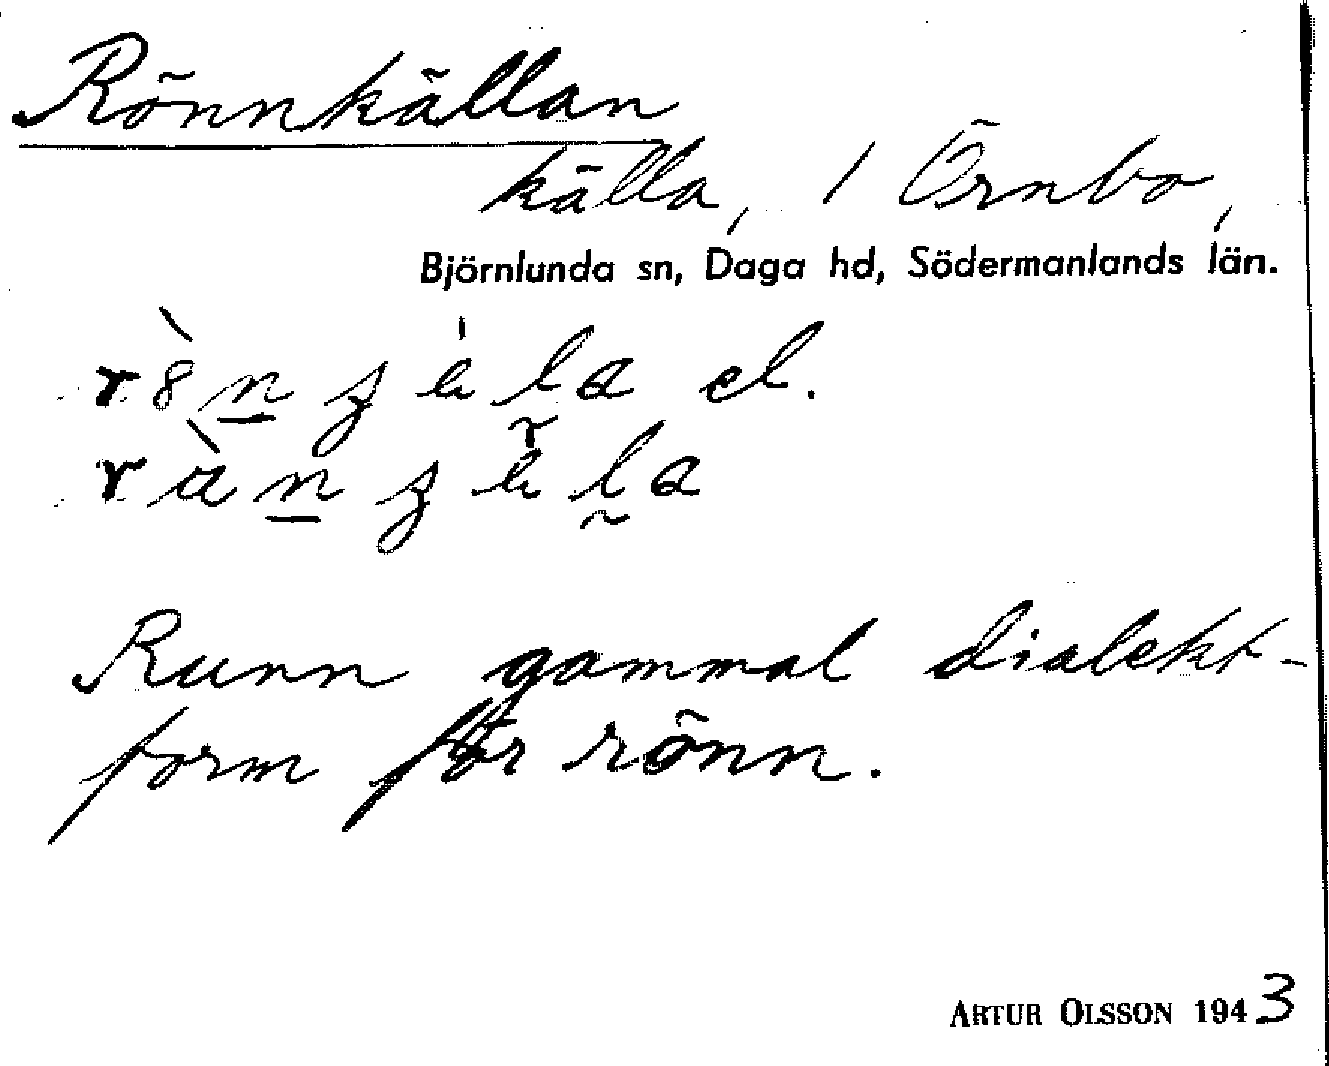 Rönnkällan
källa, 1 Örnbo,
Björnlunda sn, Daga hd, Södermanlands län.
el.
Runn gammal dialekt-
form för rönn.
ARTUR OLSSON 1943